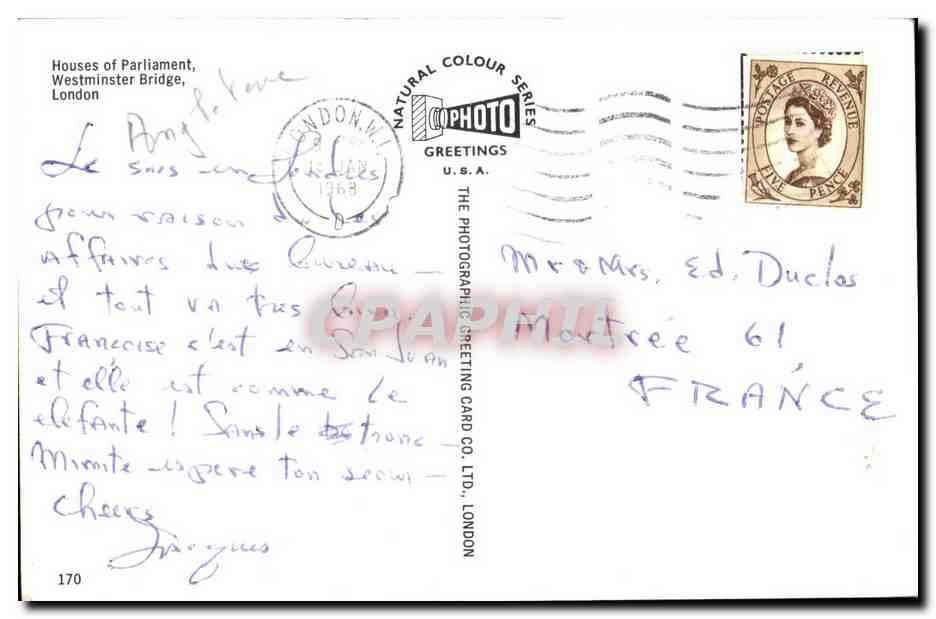 Houses of Parliament,
Westminster Bridge,
London
Angleterre
NATURAL COLOUR SERIES
PHOTO
GREETINGS
U.S.A.
LONDON.W.1
JAN
1968
POSTAGE REVENUE
FIVE PENCE
Le suis en Londres
pour raison du
affaires du bureau —
et tout va tres
Francoise c'est en San Juan
et elle est comme le
elefante ! Sans le tronc —
espere ton —
Cheers
Jacques
Mr & Mrs. Ed. Duclos
Mortrée 61
FRANCE
THE PHOTOGRAPHIC GREETING CARD CO. LTD., LONDON
CPAPHIL
170